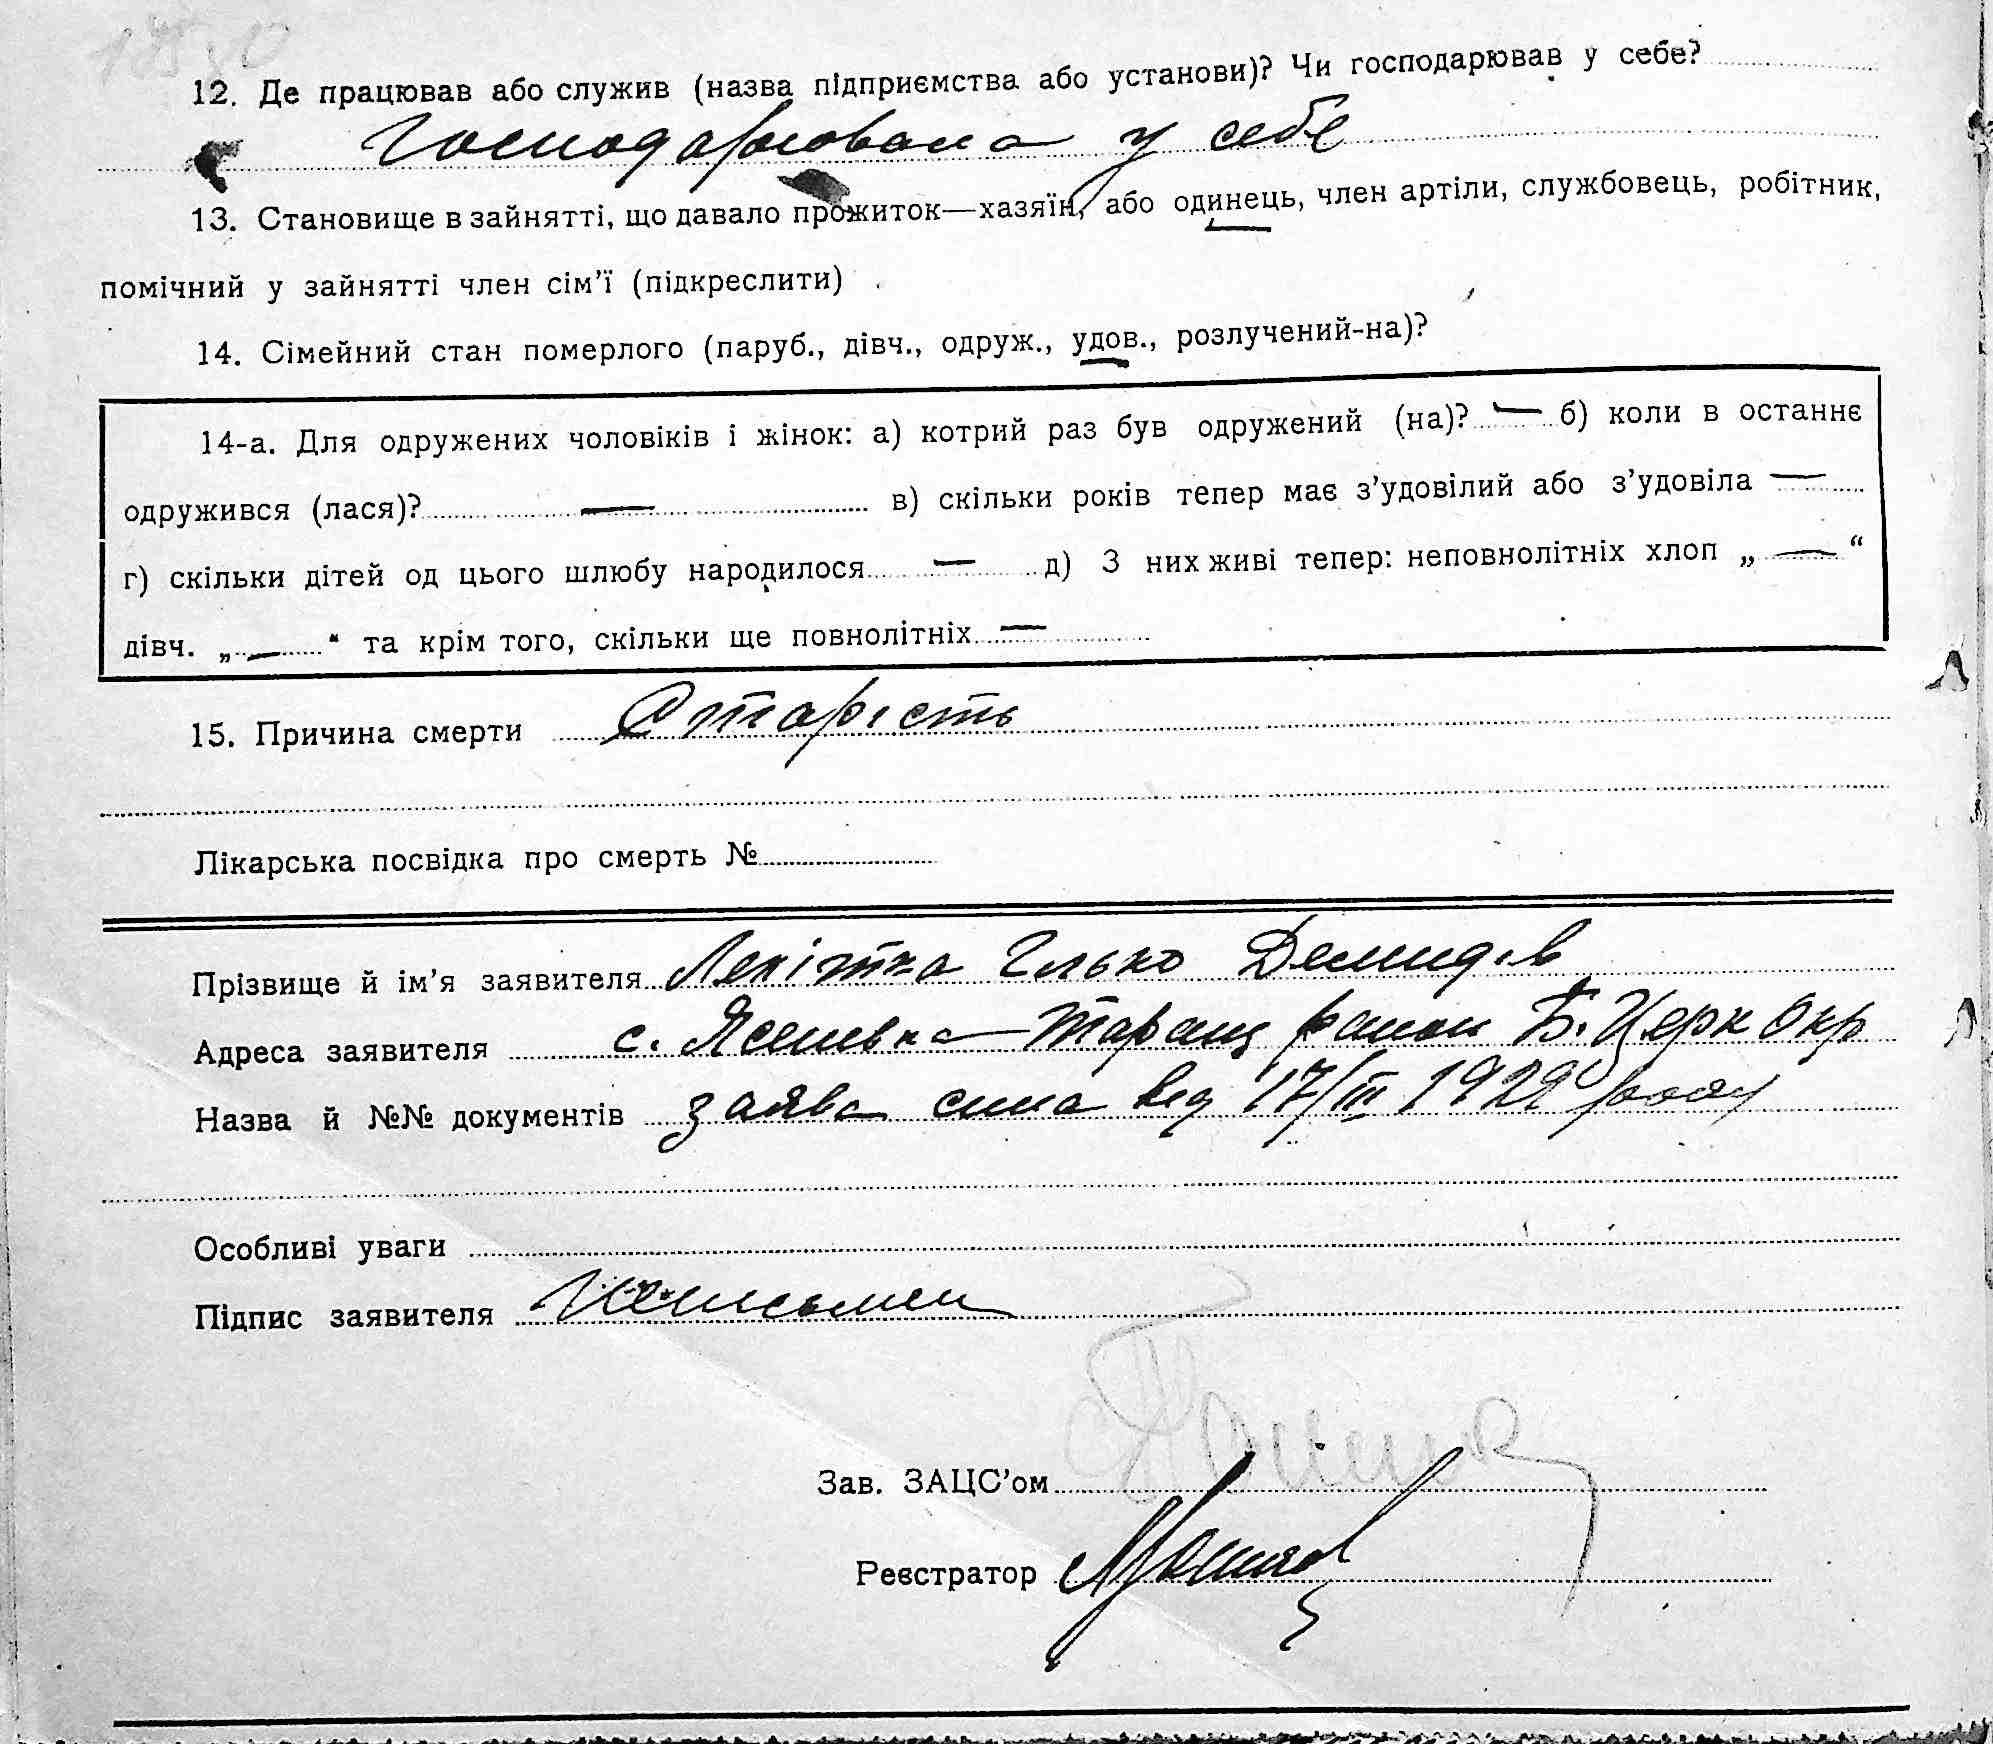 12. Де працював або служив (назва підприємства або установи)? Чи господарював у себе?
Господарювала у себе
13. Становище в зайнятті, що давало прожиток—хазяїн, або одинець, член артіли, службовець, робітник,
помічний у зайнятті член сім’ї (підкреслити)
14. Сімейний стан померлого (паруб., дівч., одруж., удов., розлучений-на)?
14-а. Для одружених чоловіків і жінок: а) котрий раз був одружений (на)? — б) коли в останнє
одружився (лася)? — в) скільки років тепер має з’удовілий або з’удовіла —
г) скільки дітей од цього шлюбу народилося — д) З них живі тепер: неповнолітніх хлоп „ — “
дівч. „ — “ та крім того, скільки ще повнолітніх —
15. Причина смерти Старість
Лікарська посвідка про смерть №
Прізвище й ім’я заявителя Ілько Демидів
Адреса заявителя с. Ясенівка Таращ район Б. Церк Окр
Назва й №№ документів заява сина від 17/III 1929 року
Особливі уваги
Підпис заявителя Неписьмен
Зав. ЗАЦС’ом
Реєстратор